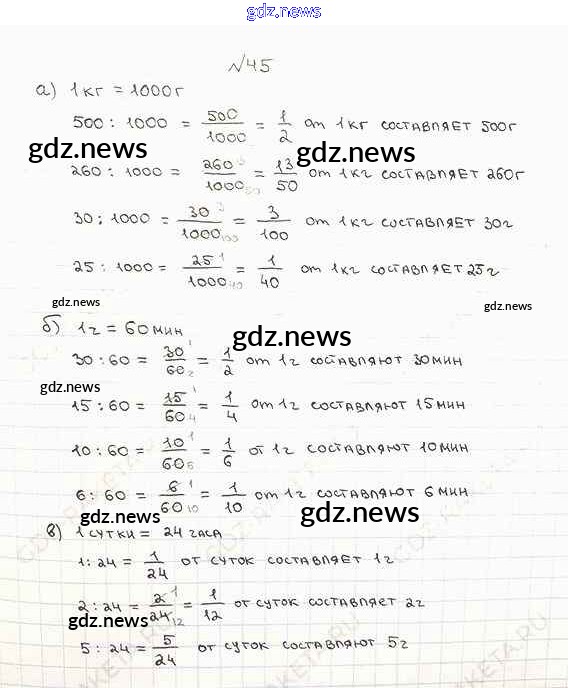 gdz.news
№45
а) 1кг = 1000г
500 : 1000 = 500/1000 = 1/2 от 1кг составляет 500г
gdz.news gdz.news
260 : 1000 = 260/1000 50 = 13/50 от 1кг составляет 260г
30 : 1000 = 30 3/1000 100 = 3/100 от 1кг составляет 30г
25 : 1000 = 25 1/1000 40 = 1/40 от 1кг составляет 25г
gdz.news gdz.news
б) 1г = 60мин
gdz.news
30 : 60 = 30 1/60 2 = 1/2 от 1г составляют 30мин
gdz.news
15 : 60 = 15 1/60 4 = 1/4 от 1г составляют 15мин
10 : 60 = 10 1/60 6 = 1/6 от 1г составляют 10мин
6 : 60 = 6 1/60 10 = 1/10 от 1г составляют 6мин
gdz.news gdz.news
в) 1сутки = 24часа
1 : 24 = 1/24 от суток составляет 1г
2 : 24 = 2 1/24 12 = 1/12 от суток составляет 2г
gdz.news
5 : 24 = 5/24 от суток составляют 5г